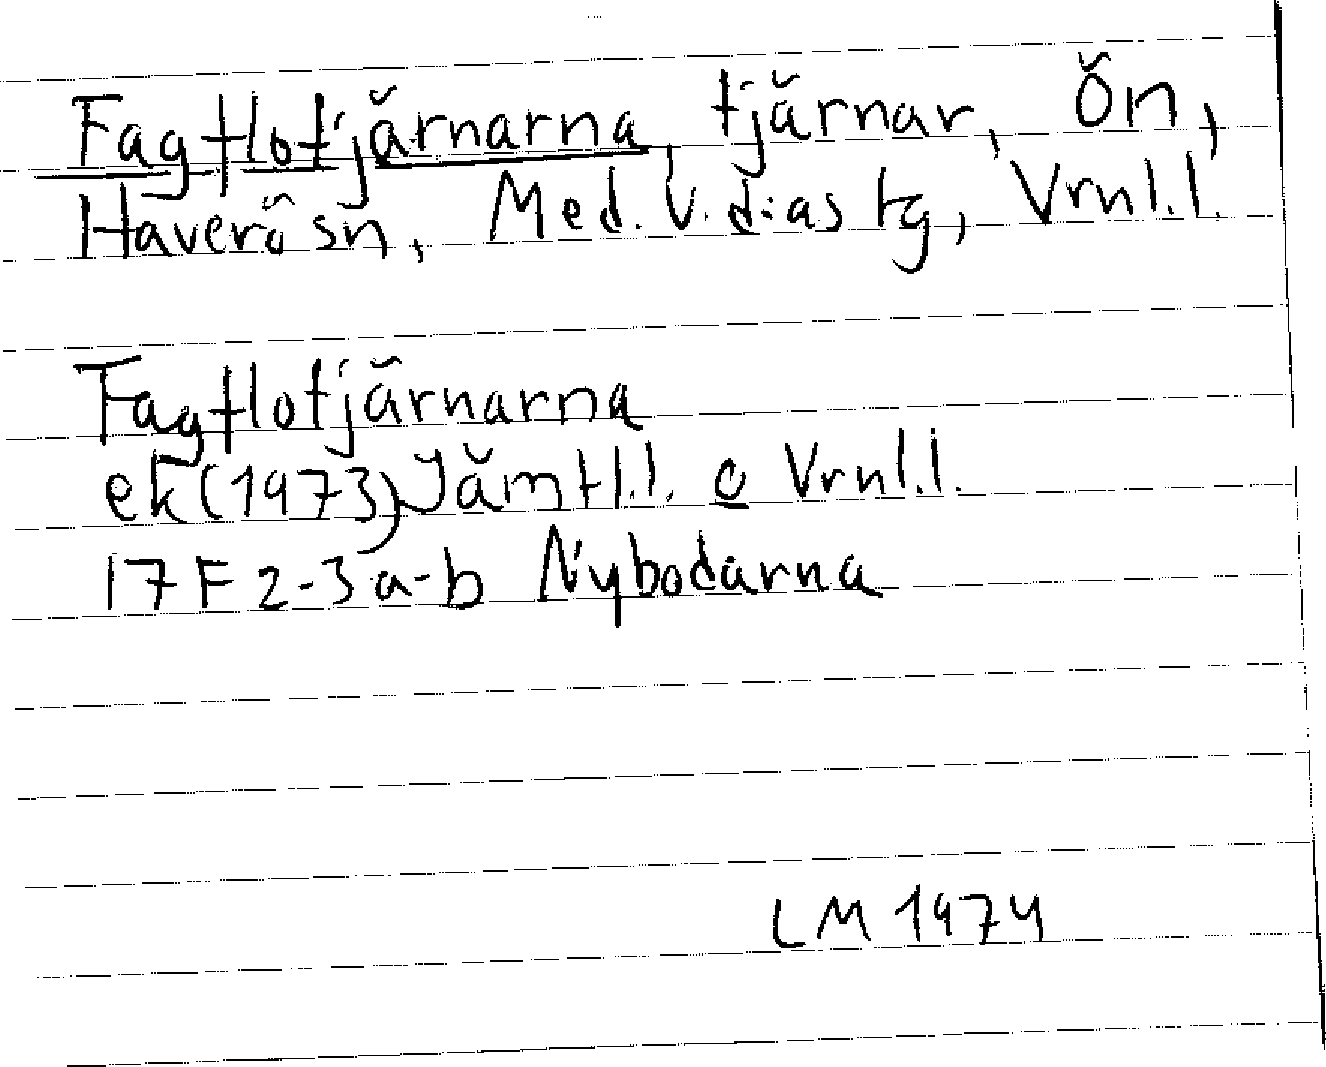 Fagflotjärnarna, tjärnar, Ön,
Haverö sn, Med. V. d:as tg, Vrnl.l.
Fagflotjärnarna
ek (1973) Jämtl.l. o Vrnl.l.
17F 2-3 a-b Nybodarna
LM 1974